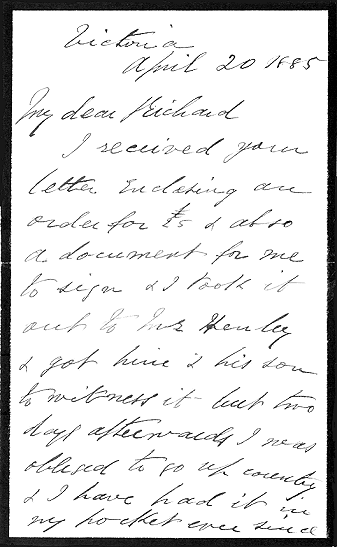 Victoria
April 20 1885
My dear Richard
I received your
letter enclosing an
order for £5 & also
a document for me
to sign & I took it
out to Mr Henley
& got him & his son
to witness it but two
days afterwards I was
obliged to go up country
& I have had it in
my pocket ever since